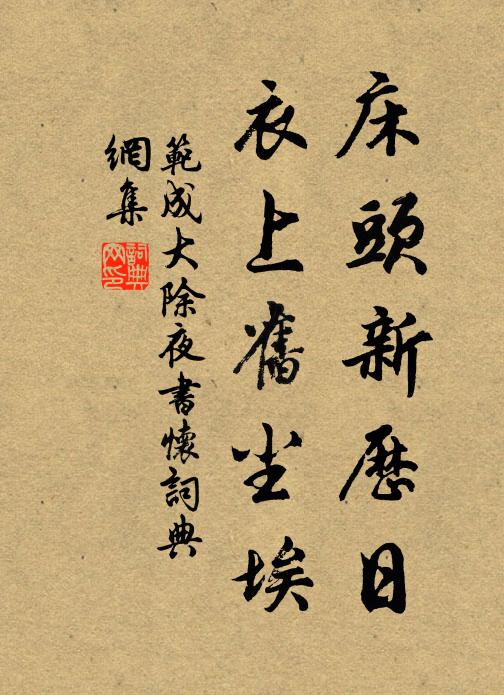 床頭新曆日
衣上舊尘埃
範成大除夜書懷詞典
網集
詞典网印